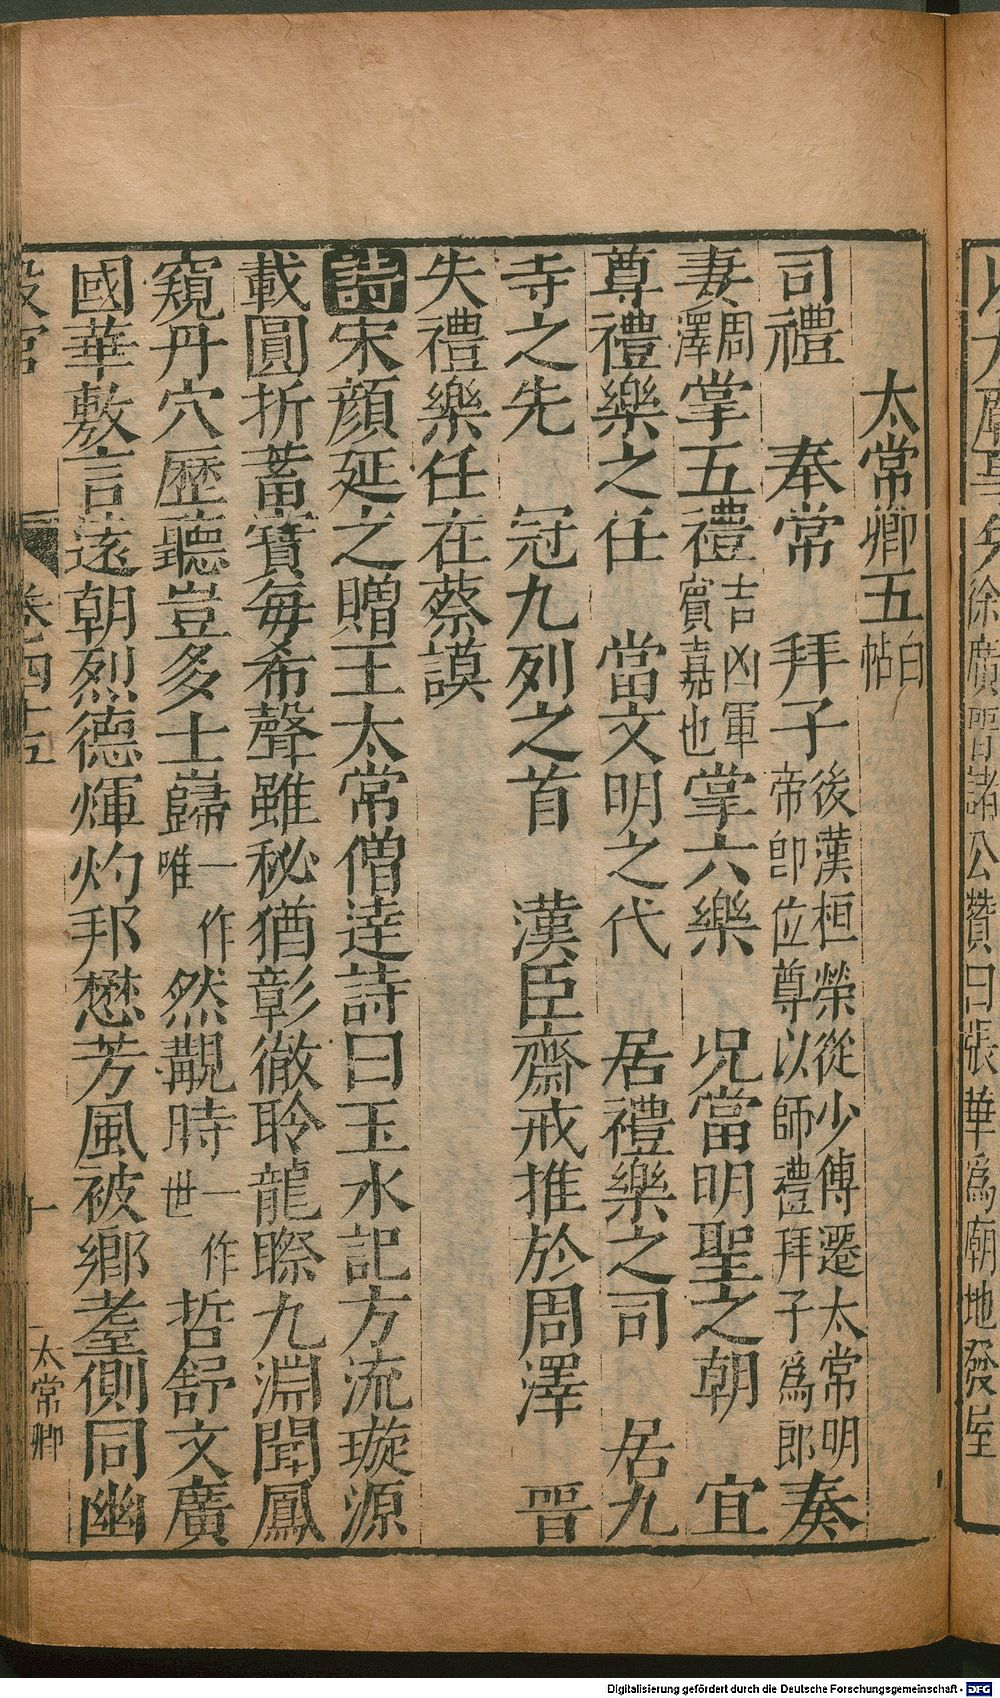 徐廣晉諸公贊曰張華爲廟地發屋
太常卿五白帖
司禮　奉常　拜子後漢桓榮從少傅遷太常明帝即位尊以師禮拜子爲郎奏
妻周澤掌五禮吉凶軍賓嘉也掌六樂　況當明聖之朝　宜
尊禮樂之任　當文明之代　居禮樂之司　居九
寺之先　冠九列之首　漢臣齋戒推於周澤　晉
失禮樂任在蔡謨
詩宋顔延之贈王太常僧達詩曰玉水記方流璇源
載圓折蓄寶每希聲雖秘猶彰徹聆龍䁮九淵聞鳳
窺丹穴歷聽豈多士巋一作唯然覯時一作世哲舒文廣
國華敷言遠朝烈德煇灼邦懋芳風被鄉耋側同幽
設官　卷四十五　太常卿　十
Digitalisierung gefördert durch die Deutsche Forschungsgemeinschaft - DFG